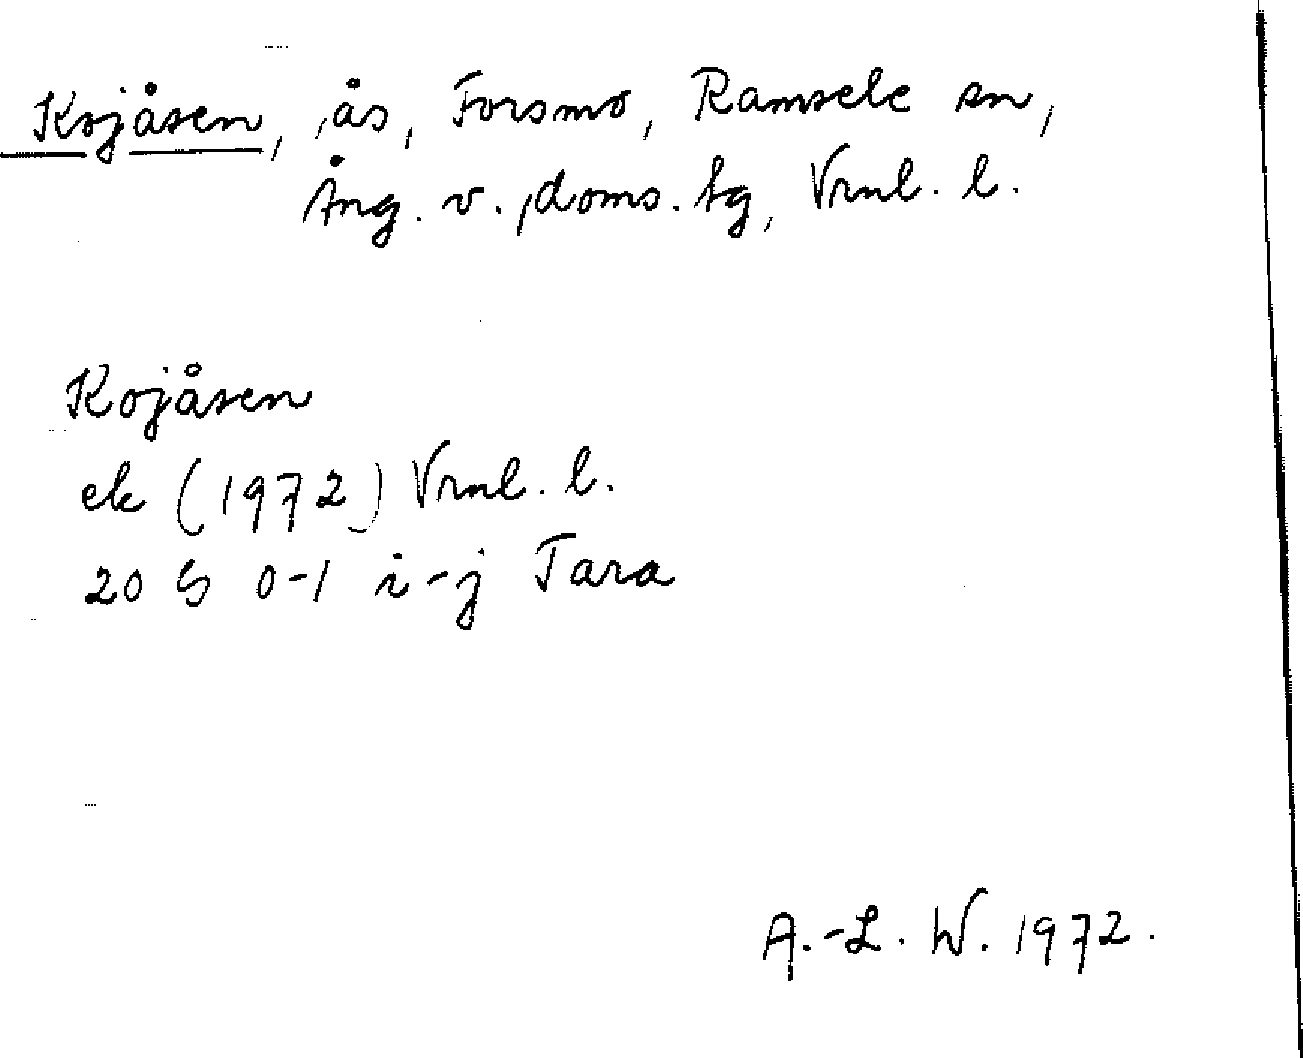 Kojåsen, ås, Forsmo, Ramsele sn,
Ång. v., doms. tg, Vrnl. l.
Kojåsen
ek (1972) Vrnl. l.
20 G 0-1 i-j Tara
A.-L. W. 1972.